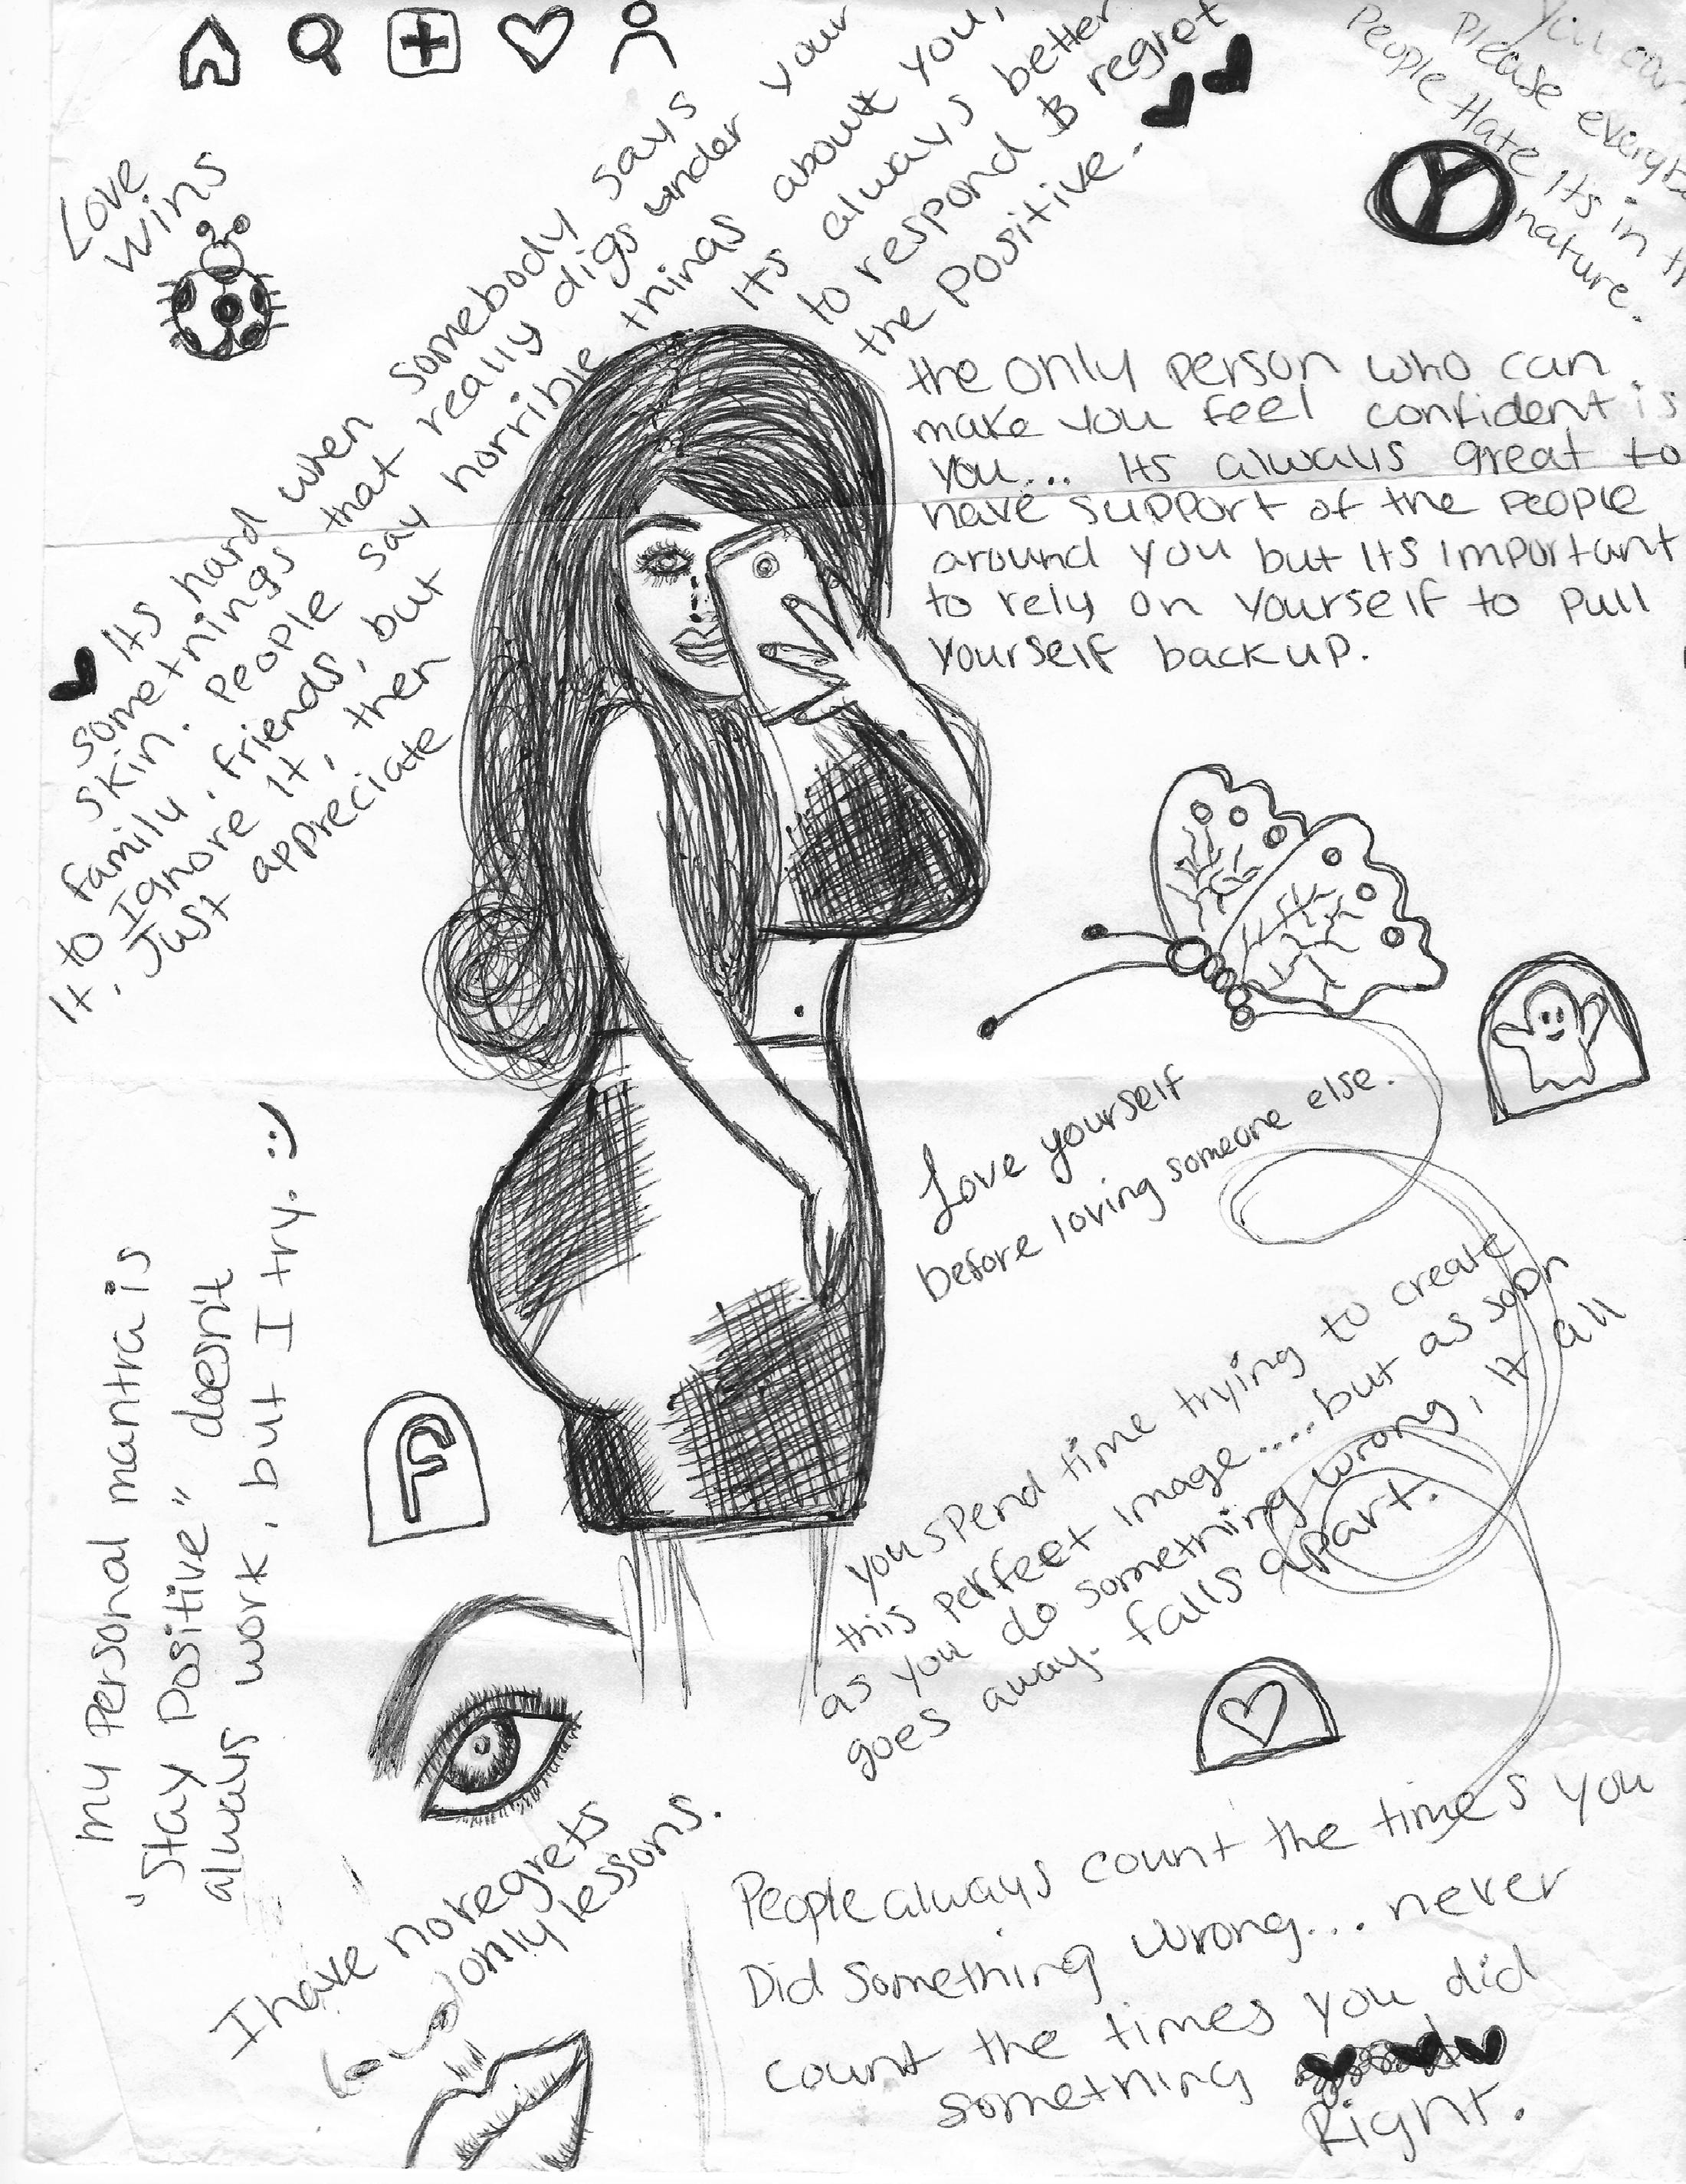 Love
Wins
Its hard when somebody says
somethings that really digs under your
skin. People say horrible things about you,
to family, friends, but Its always better
to Ignore It, then to respond & regret
It. Just appreciate the positive.
You can
Please
People Hate Its in
nature.
the only person who can
make you feel confident is
you... Its always great to
have support of the people
around you but Its important
to rely on yourself to pull
yourself back up.
Love yourself
before loving someone else.
my personal mantra is
"Stay Positive" doesn't
always work, but I try. :)
F
you spend time trying to create
this perfect image.... but as soon
as you do something wrong, It all
goes away. falls apart.
I have no regrets
only lessons.
People always count the times you
Did something wrong... never
count the times you did
something
Right.